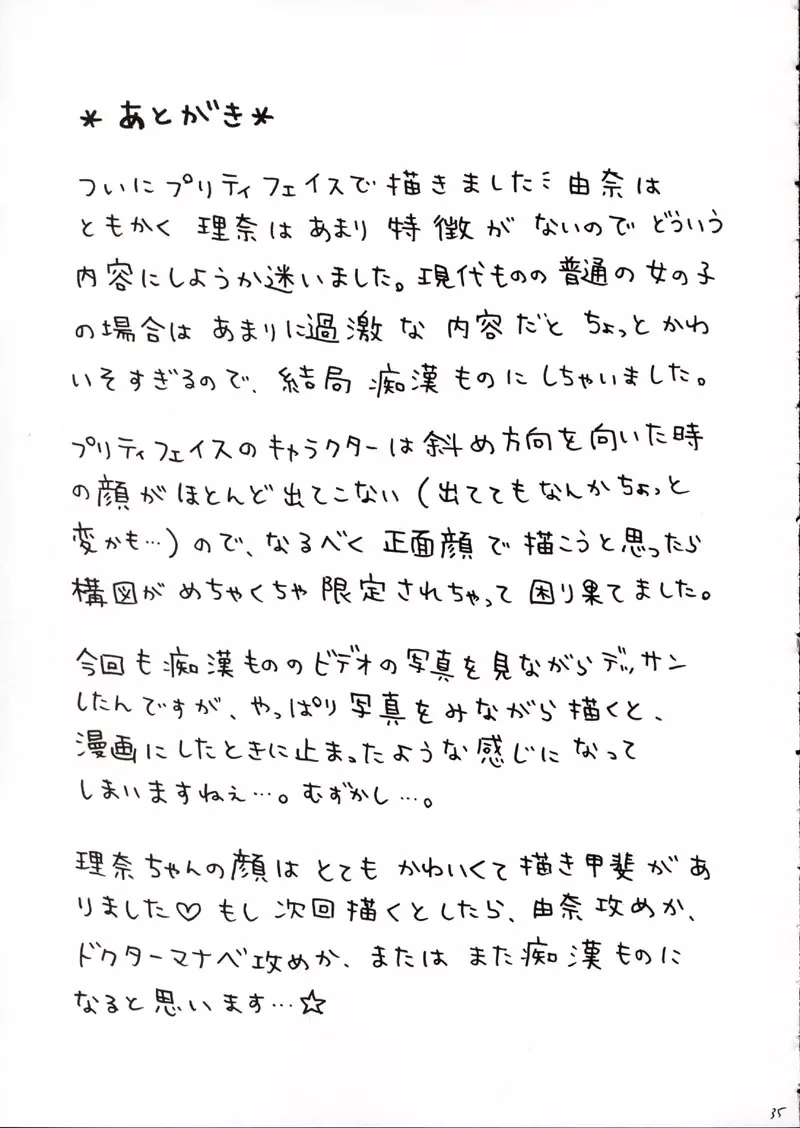 ＊あとがき＊
ついにプリティフェイスで描きましたミ 由奈は
ともかく 理奈はあまり 特徴が ないので どういう
内容にしようか迷いました。現代ものの 普通の女の子
の場合は あまりに過激な 内容だと ちょっとかわ
いそすぎるので、結局 痴漢 ものに しちゃいました。
プリティフェイスのキャラクターは斜め方向を向いた時
の顔がほとんど出てこない（出ててもなんかちょっと
変かも…）ので、なるべく 正面顔で描こうと思ったら
構図が めちゃくちゃ 限定されちゃって 困り果てました。
今回も痴漢もののビデオの写真を見ながらデッサン
したんですが、やっぱり 写真をみながら描くと、
漫画にしたときに止まったような感じになって
しまいますねぇ…。むずかし…。
理奈ちゃんの顔は とても かわいくて描き甲斐があ
りました♡ もし 次回描くとしたら、由奈攻めか、
ドクターマナベ攻めか、または また痴漢ものに
なると思います…☆
35